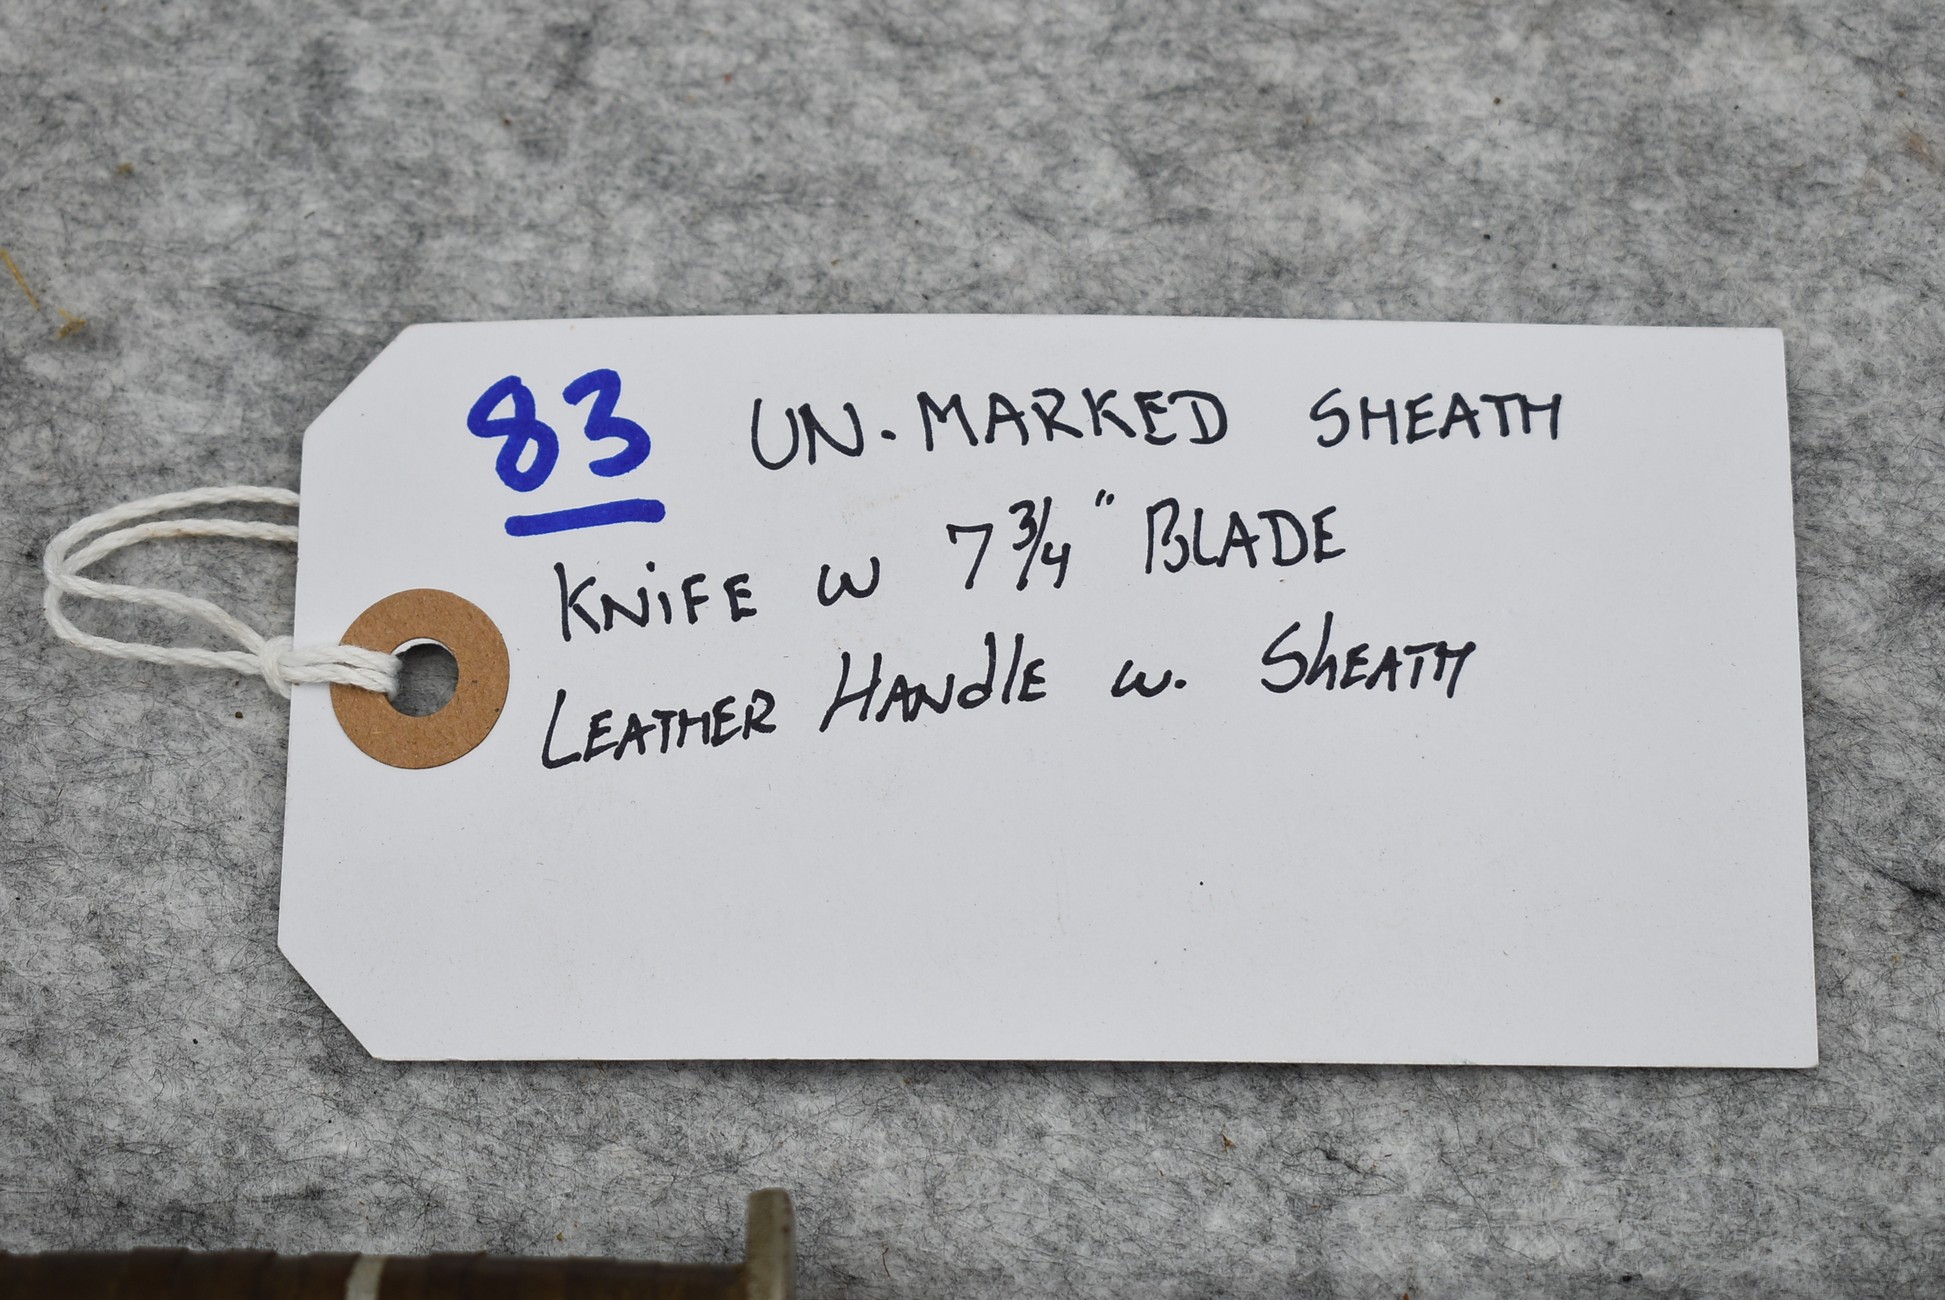 83 UN-MARKED SHEATH
KNiFE w 7 3/4" BLADE
LEATHER HANdlE w. ShEATH